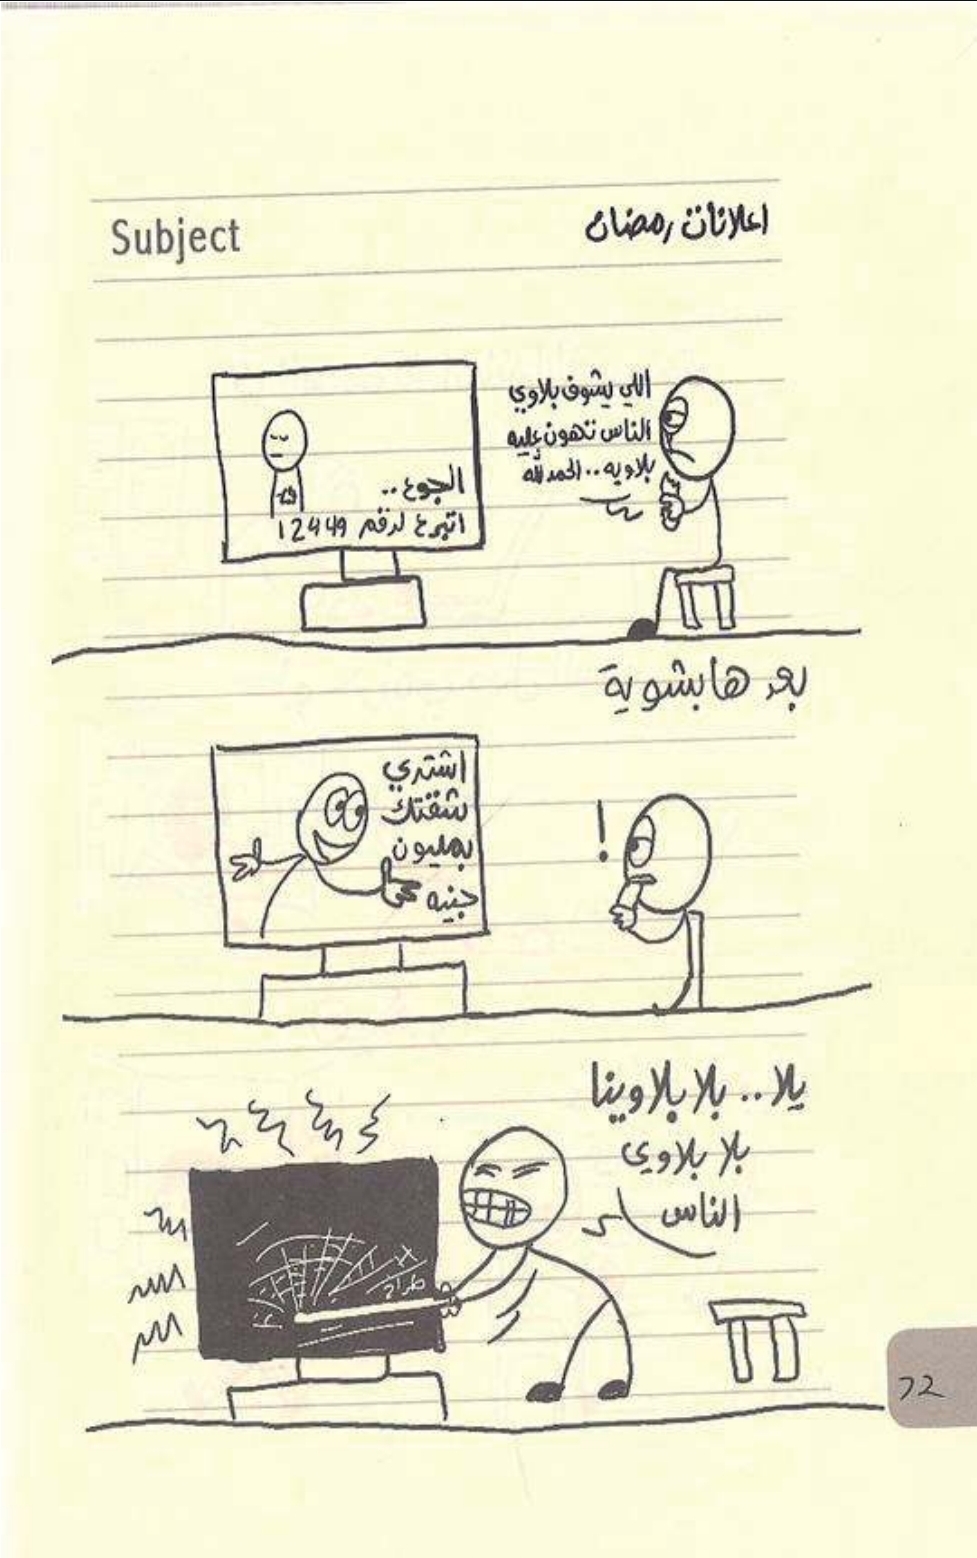 Subject
اعلانات رمضان
اللي يشوف بلاوي
الناس تهون عليه
بلاويه.. الحمد لله
الجوع..
اتبرع لرقم 12449
بعدها بشوية
اشتري
شقتك
بمليون
جنيه
!
يلا.. بلا بلاوينا
بلا بلاوي
الناس
طراخ
72